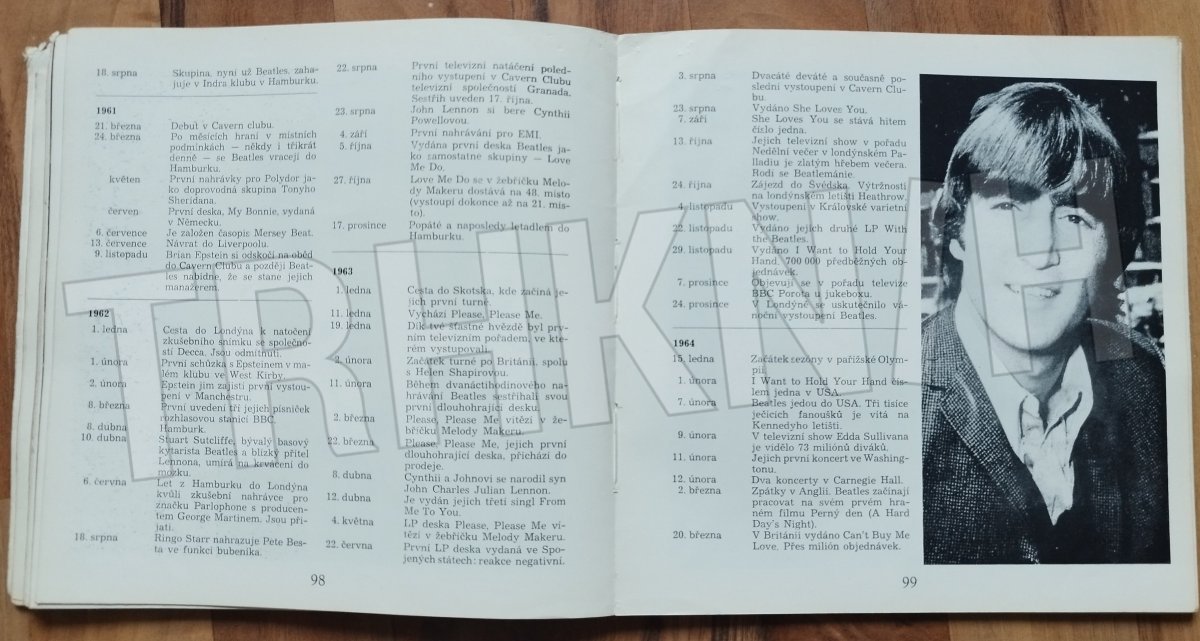 18. srpna Skupina, nyní už Beatles, zaha-
juje v Indra klubu v Hamburku.
1961
21. března Debut v Cavern clubu.
24. března Po měsících hraní v místních
podmínkách — někdy i třikrát
denně — se Beatles vracejí do
Hamburku.
květen První nahrávky pro Polydor ja-
ko doprovodná skupina Tonyho
Sheridana.
červen První deska, My Bonnie, vydaná
v Německu.
6. července Je založen časopis Mersey Beat.
13. července Návrat do Liverpoolu.
9. listopadu Brian Epstein si odskočí na oběd
do Cavern Clubu a později Beat-
les nabídne, že se stane jejich
manažerem.
1962
1. ledna Cesta do Londýna k natočení
zkušebního snímku se společnos-
tí Decca. Jsou odmítnuti.
1. února První schůzka s Epsteinem v ma-
lém klubu ve West Kirby.
2. února Epstein jim zajistí první vystou-
pení v Manchestru.
8. března První uvedení tří jejich písniček
rozhlasovou stanicí BBC.
8. dubna Hamburk.
10. dubna Stuart Sutcliffe, bývalý basový
kytarista Beatles a blízký přítel
Lennona, umírá na krvácení do
mozku.
6. června Let z Hamburku do Londýna
kvůli zkušební nahrávce pro
značku Parlophone s producen-
tem George Martinem. Jsou při-
jati.
18. srpna Ringo Starr nahrazuje Pete Bes-
ta ve funkci bubeníka.
22. srpna První televizní natáčení poled-
ního vystupení v Cavern Clubu
televizní společností Granada.
Sestřih uveden 17. října.
23. srpna John Lennon si bere Cynthii
Powellovou.
4. září První nahrávání pro EMI.
5. října Vydána první deska Beatles ja-
ko samostatné skupiny — Love
Me Do.
27. října Love Me Do se v žebříčku Melo-
dy Makeru dostává na 48. místo
(vystoupí dokonce až na 21. mís-
to).
17. prosince Popáté a naposledy letadlem do
Hamburku.
1963
1. ledna Cesta do Skotska, kde začíná je-
jich první turné.
11. ledna Vychází Please, Please Me.
19. ledna Dík tvé šťastné hvězdě byl prv-
ním televizním pořadem, ve kte-
rém vystupovali.
2. února Začátek turné po Británii, spolu
s Helen Shapirovou.
11. února Během dvanáctihodinového na-
hrávání Beatles sestříhali svou
první dlouhohrající desku.
2. března Please, Please Me vítězí v že-
bříčku Melody Makeru.
22. března Please, Please Me, jejich první
dlouhohrající deska, přichází do
prodeje.
8. dubna Cynthii a Johnovi se narodil syn
John Charles Julian Lennon.
12. dubna Je vydán jejich třetí singl From
Me To You.
4. května LP deska Please, Please Me ví-
tězí v žebříčku Melody Makeru.
22. června První LP deska vydaná ve Spo-
jených státech: reakce negativní.
98
3. srpna Dvacáté deváté a současně po-
slední vystoupení v Cavern Clu-
bu.
23. srpna Vydáno She Loves You.
7. září She Loves You se stává hitem
číslo jedna.
13. října Jejich televizní show v pořadu
Nedělní večer v londýnském Pa-
lladiu je zlatým hřebem večera.
Rodí se Beatlemánie.
24. října Zájezd do Švédska. Výtržnosti
na londýnském letišti Heathrow.
4. listopadu Vystoupení v Královské varietní
show.
22. listopadu Vydáno jejich druhé LP With
the Beatles.
29. listopadu Vydáno I Want to Hold Your
Hand. 700 000 předběžných ob-
jednávek.
7. prosince Objevují se v pořadu televize
BBC Porota u jukeboxu.
24. prosince V Londýně se uskutečnilo vá-
noční vystoupení Beatles.
1964
15. ledna Začátek sezóny v pařížské Olym-
pii.
1. února I Want to Hold Your Hand čís-
lem jedna v USA.
7. února Beatles jedou do USA. Tři tisíce
ječících fanoušků je vítá na
Kennedyho letišti.
9. února V televizní show Edda Sullivana
je vidělo 73 miliónů diváků.
11. února Jejich první koncert ve Washing-
tonu.
12. února Dva koncerty v Carnegie Hall.
2. března Zpátky v Anglii. Beatles začínají
pracovat na svém prvém hra-
ném filmu Perný den (A Hard
Day's Night).
20. března V Británii vydáno Can't Buy Me
Love. Přes milión objednávek.
99
TRHKNIH